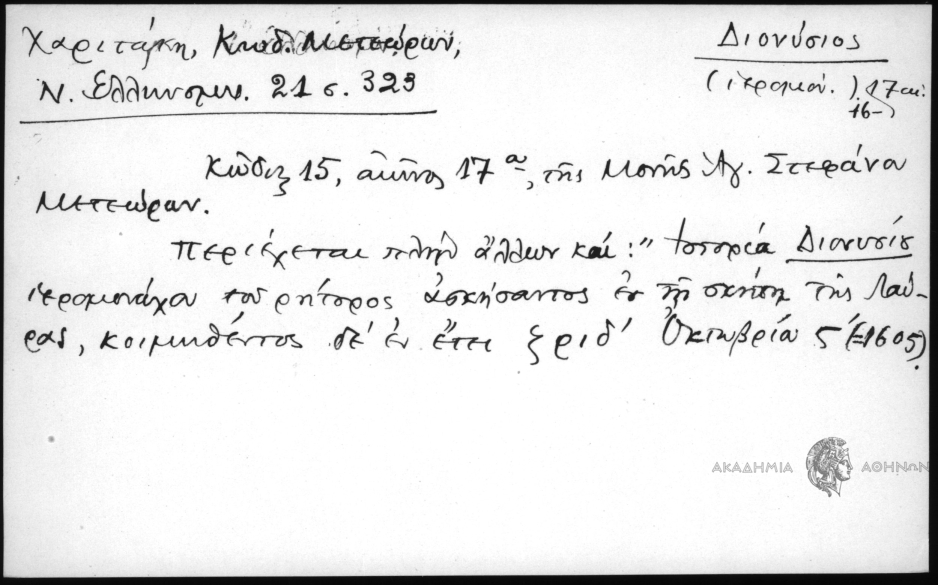 Χαριτάκη, Κωδ. Μετεώρων,
Ν. Ελληνομν. 21 σ. 323
Διονύσιος
(ἱερομόν.) 17 αι.
16-
Κῶδιξ 15, αἰῶνος 17ου, τῆς Μονῆς Ἁγ. Στεφάνου
Μετεώρων.
Περιέχεται πλὴν ἄλλων καί: " Ἱστορία Διονυσίου
ἱερομονάχου τοῦ ρήτορος ἀσκήσαντος ἐν τῇ σκήτῃ τῆς Λαύ-
ρας, κοιμηθέντος δέ ἐν ἔτει ζριδ' Ὀκτωβρίου 5 (=1605).
ΑΚΑΔΗΜΙΑ ΑΘΗΝΩΝ